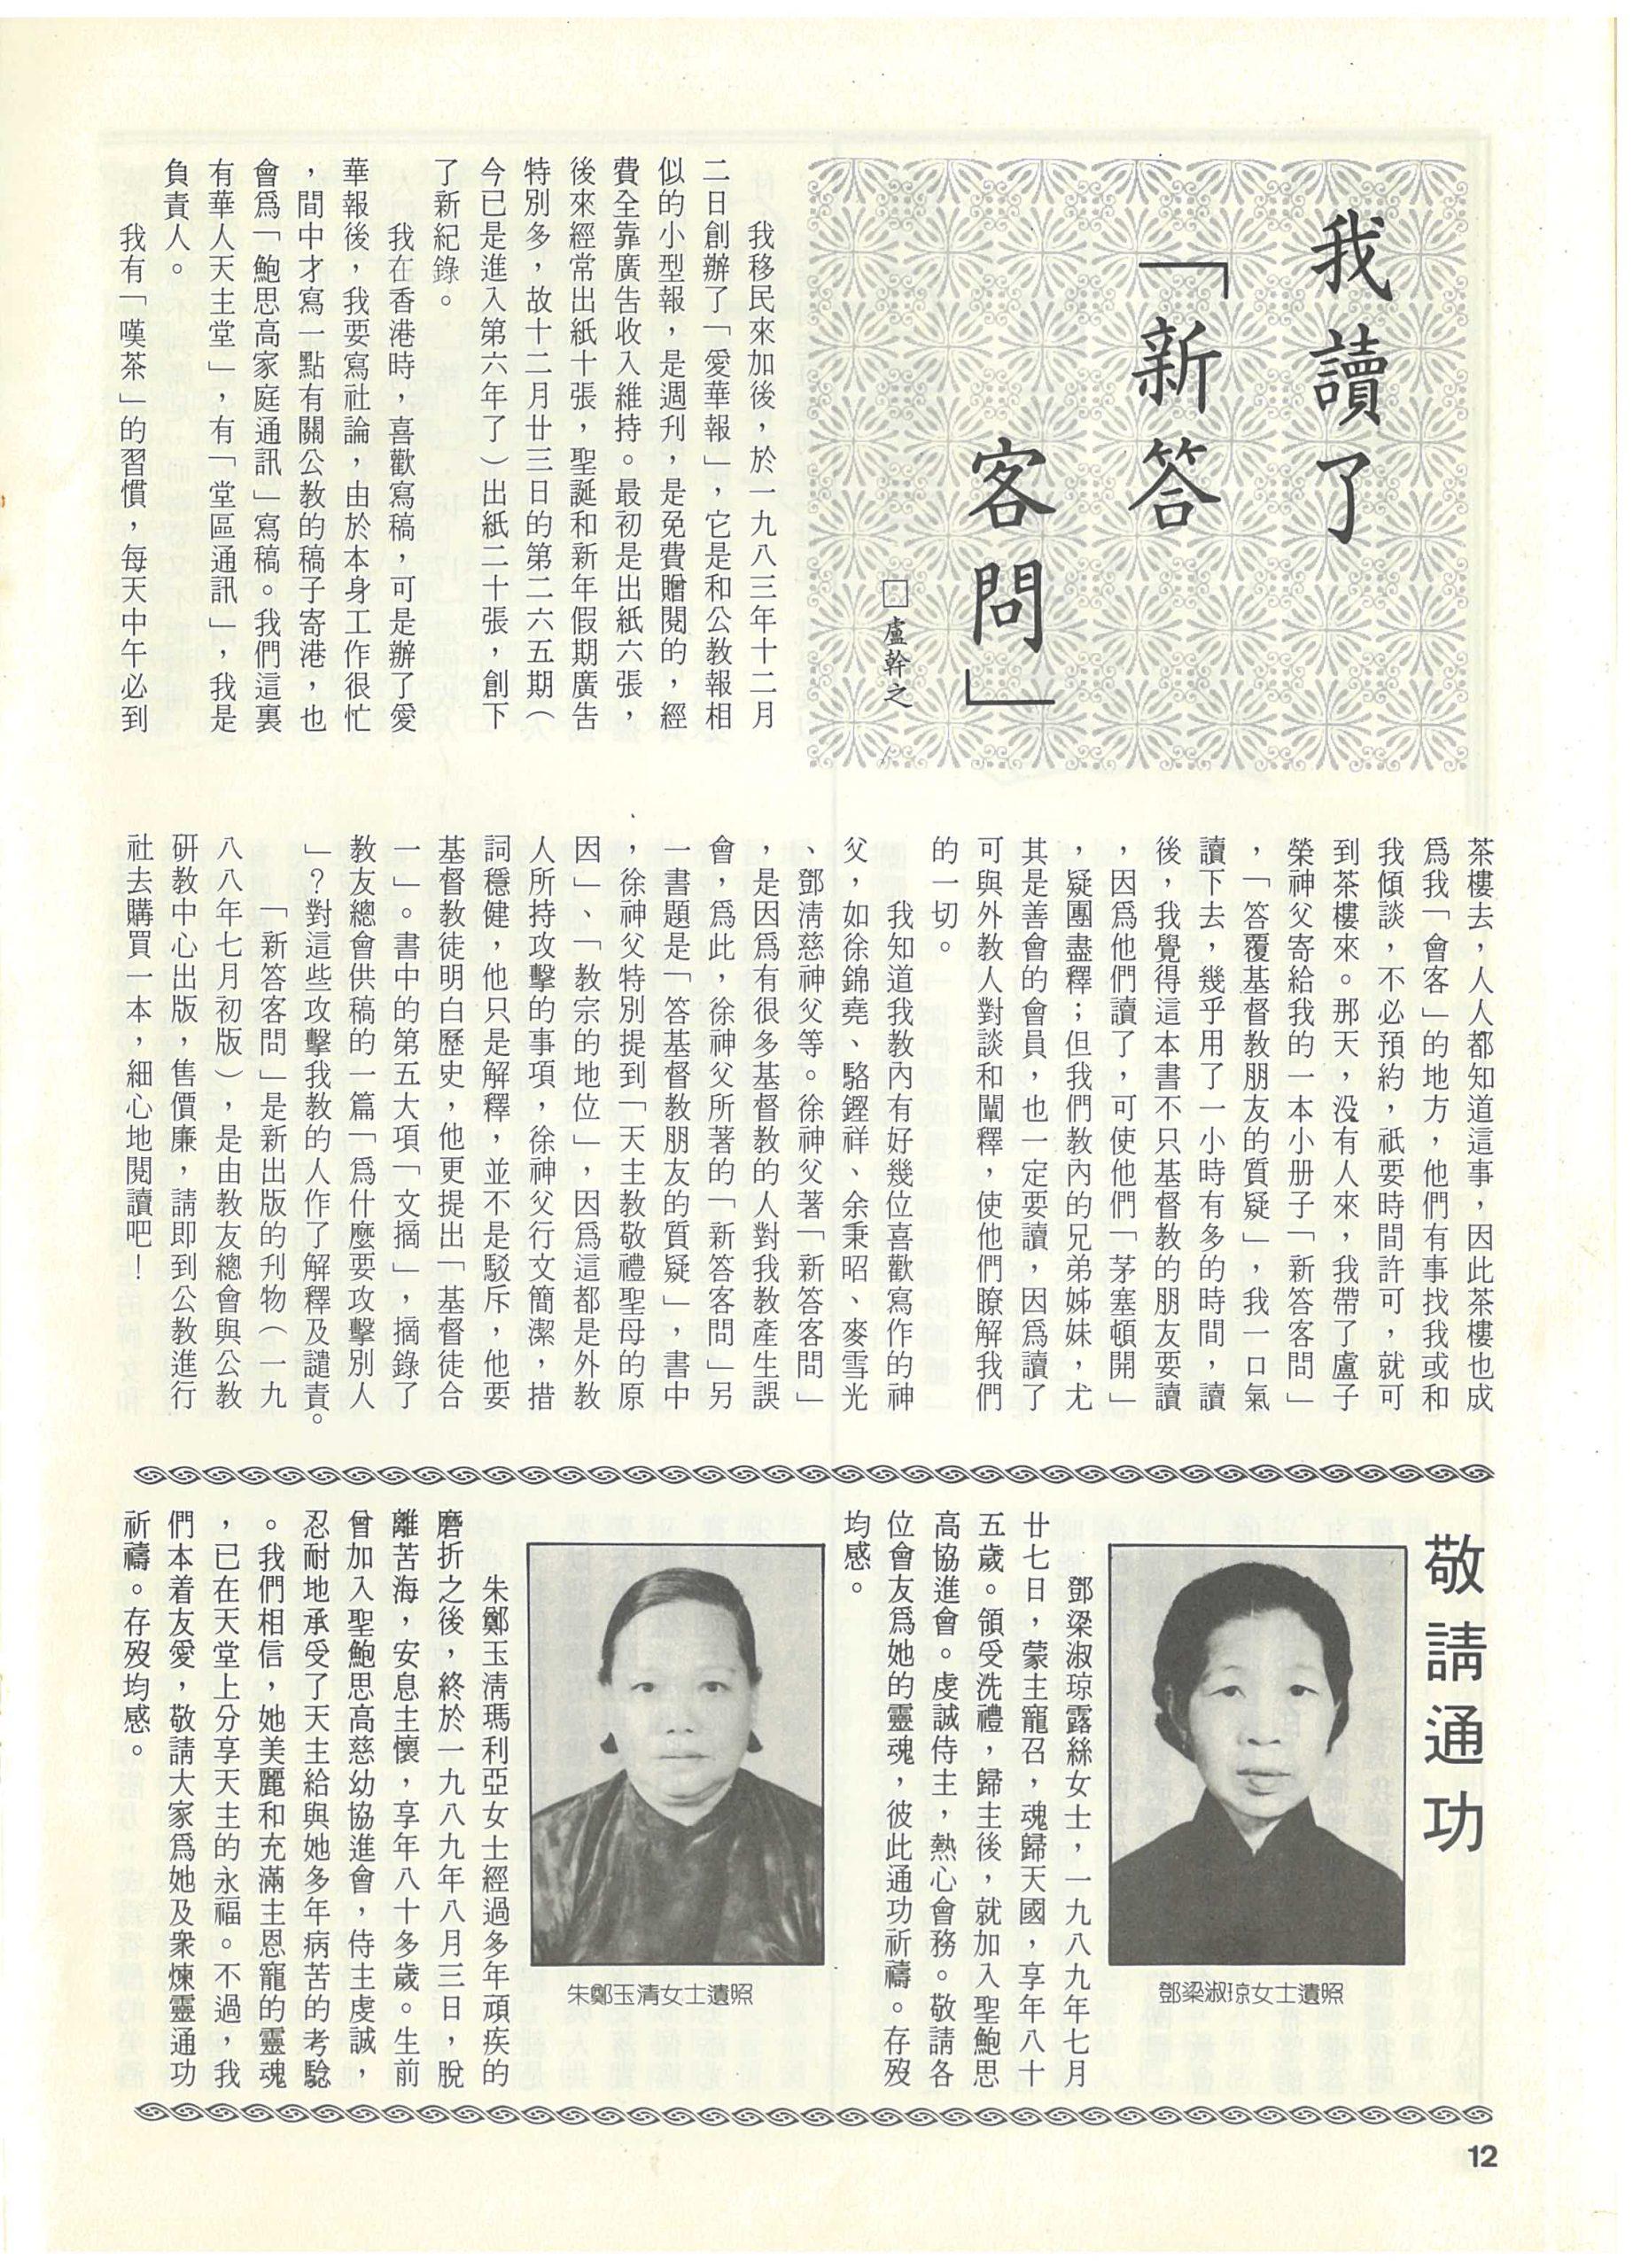 我讀了
「新答
客問」
□盧幹之
我移民來加後，於一九八三年十二月
二日創辦了「愛華報」，它是和公教報相
似的小型報，是週刊，是免費贈閱的，經
費全靠廣告收入維持。最初是出紙六張，
後來經常出紙十張，聖誕和新年假期廣告
特別多，故十二月廿三日的第二六五期（
今已是進入第六年了）出紙二十張，創下
了新紀錄。
我在香港時，喜歡寫稿，可是辦了愛
華報後，我要寫社論，由於本身工作很忙
，間中才寫一點有關公教的稿子寄港，也
會爲「鮑思高家庭通訊」寫稿。我們這裏
有華人天主堂」，有「堂區通訊」，我是
負責人。
我有「嘆茶」的習慣，每天中午必到
茶樓去，人人都知道這事，因此茶樓也成
爲我「會客」的地方，他們有事找我或和
我傾談，不必預約，祇要時間許可，就可
到茶樓來。那天，没有人來，我帶了盧子
榮神父寄給我的一本小册子「新答客問」
，「答覆基督教朋友的質疑」，我一口氣
讀下去，幾乎用了一小時有多的時間，讀
後，我覺得這本書不只基督教的朋友要讀
，因爲他們讀了，可使他們「茅塞頓開」
，疑團盡釋；但我們教內的兄弟姊妹，尤
其是善會的會員，也一定要讀，因爲讀了
可與外教人對談和闡釋，使他們瞭解我們
的一切。
我知道我教內有好幾位喜歡寫作的神
父，如徐錦堯、駱鏗祥、余秉昭、麥雪光
、鄧淸慈神父等。徐神父著「新答客問」
，是因爲有很多基督教的人對我教產生誤
會，爲此，徐神父所著的「新答客問」另
一書題是「答基督教朋友的質疑」，書中
，徐神父特別提到「天主教敬禮聖母的原
因」、「教宗的地位」，因爲這都是外教
人所持攻擊的事項，徐神父行文簡潔，措
詞穩健，他只是解釋，並不是駁斥，他要
基督教徒明白歷史，他更提出「基督徒合
一」。書中的第五大項「文摘」，摘錄了
教友總會供稿的一篇「爲什麼要攻擊別人
」？對這些攻擊我教的人作了解釋及譴責。
「新答客問」是新出版的刊物（一九
八八年七月初版），是由教友總會與公教
研教中心出版，售價廉，請即到公教進行
社去購買一本，細心地閱讀吧！
敬請通功
鄧梁淑琼女士遺照
鄧梁淑琼露絲女士，一九八九年七月
廿七日，蒙主寵召，魂歸天國，享年八十
五歲。領受洗禮，歸主後，就加入聖鮑思
高協進會。虔誠侍主，熱心會務。敬請各
位會友爲她的靈魂，彼此通功祈禱。存歿
均感。
朱鄭玉清女士遺照
朱鄭玉淸瑪利亞女士經過多年頑疾的
磨折之後，終於一九八九年八月三日，脫
離苦海，安息主懷，享年八十多歲。生前
曾加入聖鮑思高慈幼協進會，侍主虔誠，
忍耐地承受了天主給與她多年病苦的考驗
。我們相信，她美麗和充滿主恩寵的靈魂
，已在天堂上分享天主的永福。不過，我
們本着友愛，敬請大家爲她及衆煉靈通功
祈禱。存歿均感。
12